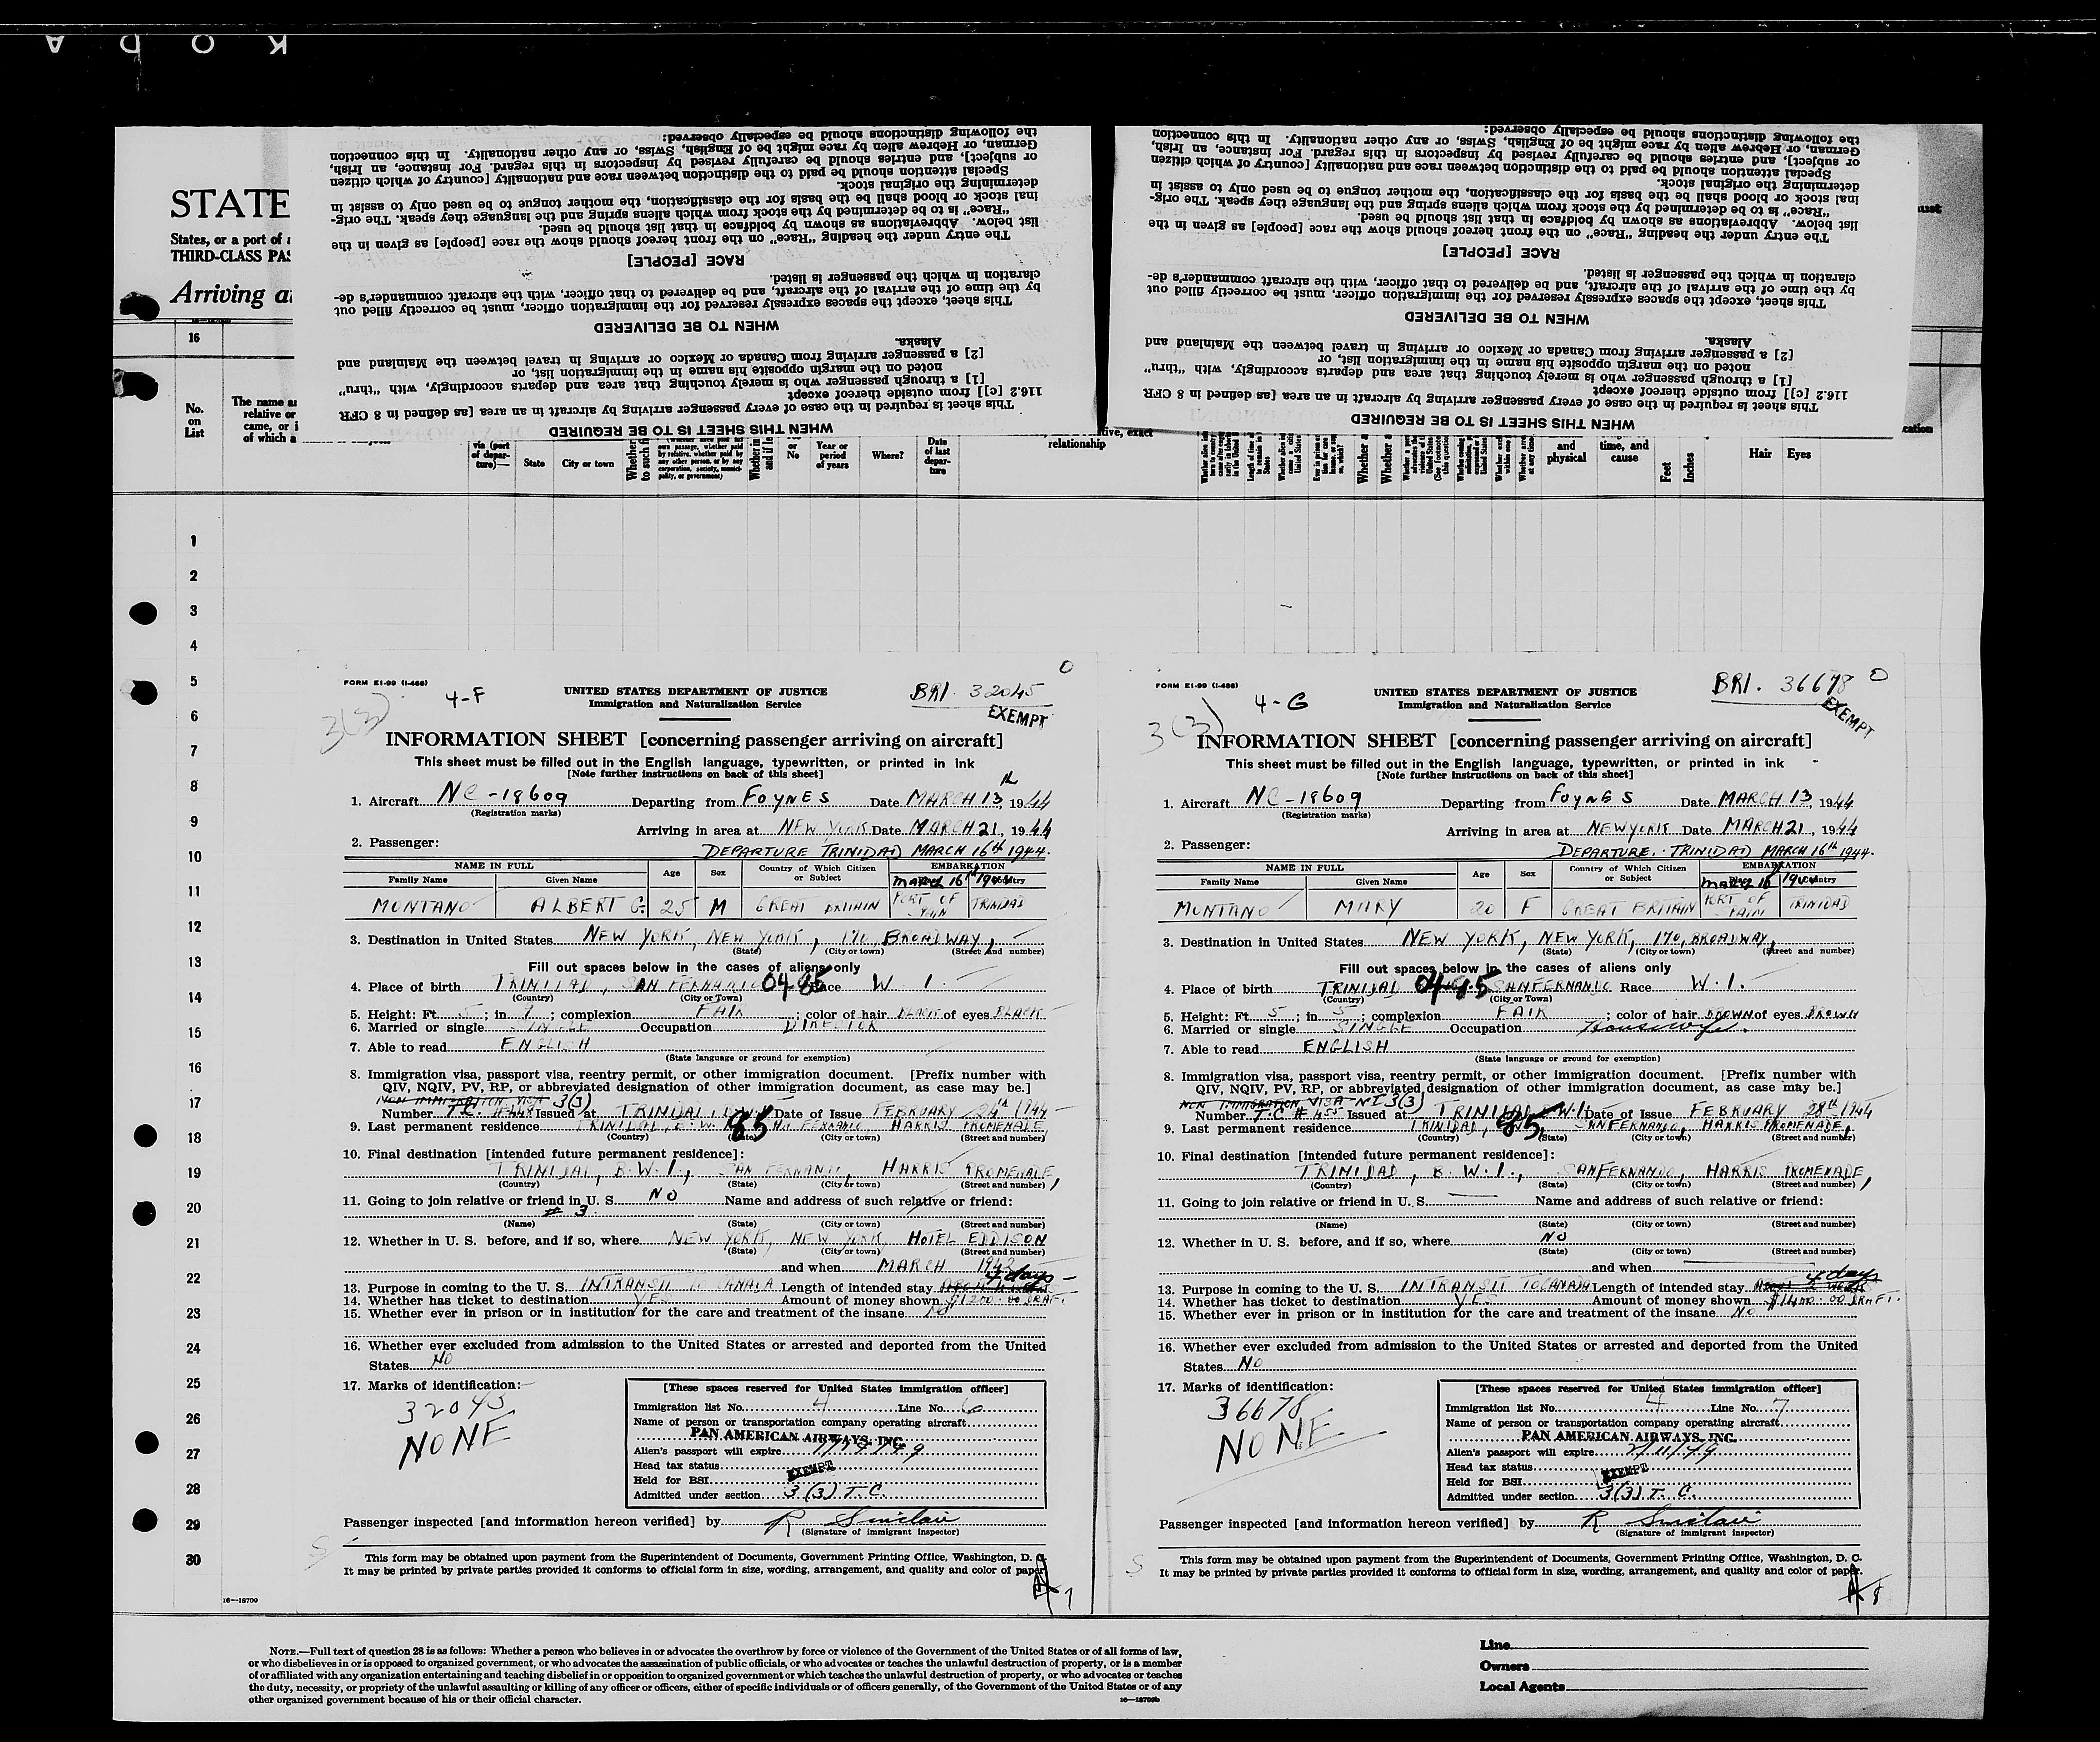 K O D A
STATE
States, or a port of
THIRD-CLASS PAS
Arriving at
16
No. on List
The name a
relative or
came, or i
of which a
the following distinctions should be especially observed:
German, or Hebrew alien by race might be of English, Swiss, or any other nationality. In this connection
or subject], and entries should be carefully revised by inspectors in this regard. For instance, an Irish,
Special attention should be paid to the distinction between race and nationality [country of which citizen
determining the original stock.
inal stock or blood shall be the basis for the classification, the mother tongue to be used only to assist in
"Race" is to be determined by the stock from which aliens spring and the language they speak. The orig-
list below. Abbreviations as shown by boldface in that list should be used.
The entry under the heading "Race" on the front hereof should show the race [people] as given in the
RACE [PEOPLE]
claration in which the passenger is listed.
by the time of the arrival of the aircraft, and be delivered to that officer, with the aircraft commander's de-
This sheet, except the spaces expressly reserved for the immigration officer, must be correctly filled out
WHEN TO BE DELIVERED
Alaska.
[2] a passenger arriving from Canada or Mexico or arriving in travel between the Mainland and
noted on the margin opposite his name in the immigration list, or
[1] a through passenger who is merely touching that area and departs accordingly, with "thru"
116.2 [c]] from outside thereof except
This sheet is required in the case of every passenger arriving by aircraft in an area [as defined in 8 CFR
WHEN THIS SHEET IS TO BE REQUIRED
the following distinctions should be especially observed:
German, or Hebrew alien by race might be of English, Swiss, or any other nationality. In this connection
or subject], and entries should be carefully revised by inspectors in this regard. For instance, an Irish,
Special attention should be paid to the distinction between race and nationality [country of which citizen
determining the original stock.
inal stock or blood shall be the basis for the classification, the mother tongue to be used only to assist in
"Race" is to be determined by the stock from which aliens spring and the language they speak. The orig-
list below. Abbreviations as shown by boldface in that list should be used.
The entry under the heading "Race" on the front hereof should show the race [people] as given in the
RACE [PEOPLE]
claration in which the passenger is listed.
by the time of the arrival of the aircraft, and be delivered to that officer, with the aircraft commander's de-
This sheet, except the spaces expressly reserved for the immigration officer, must be correctly filled out
WHEN TO BE DELIVERED
Alaska.
[2] a passenger arriving from Canada or Mexico or arriving in travel between the Mainland and
noted on the margin opposite his name in the immigration list, or
[1] a through passenger who is merely touching that area and departs accordingly, with "thru"
116.2 [c]] from outside thereof except
This sheet is required in the case of every passenger arriving by aircraft in an area [as defined in 8 CFR
WHEN THIS SHEET IS TO BE REQUIRED
via (port of depar-ture)— State City or town Whether to such Year or period of years Where? Date of last depar-ture relationship
and physical time, and cause Feet Inches Hair Eyes
1
2
3
4
5
6
7
8
9
10
11
12
13
14
15
16
17
18
19
20
21
22
23
24
25
26
27
28
29
30
16—18709
FORM EI-99 (I-466)
4-F
3(3)
UNITED STATES DEPARTMENT OF JUSTICE
Immigration and Naturalization Service
BRI. 32045
EXEMPT
INFORMATION SHEET [concerning passenger arriving on aircraft]
This sheet must be filled out in the English language, typewritten, or printed in ink
[Note further instructions on back of this sheet]
1. Aircraft NC-18609 Departing from FOYNES Date MARCH 13th, 1944
(Registration marks)
Arriving in area at NEW YORK Date MARCH 21, 1944
2. Passenger: DEPARTURE TRINIDAD MARCH 16th 1944.
NAME IN FULL Age Sex Country of Which Citizen or Subject EMBARKATION
Family Name Given Name March 16 1944 Country
MONTANO ALBERT G. 25 M GREAT BRITAIN PORT OF SPAIN TRINIDAD
3. Destination in United States NEW YORK, NEW YORK, 170, BROADWAY,
(State) (City or town) (Street and number)
Fill out spaces below in the cases of aliens only
4. Place of birth TRINIDAD, SAN FERNANDO 0485 Race W. I.
(Country) (City or Town)
5. Height: Ft. 5; in 7; complexion FAIR; color of hair BLACK of eyes BLACK
6. Married or single SINGLE Occupation DIRECTOR
7. Able to read ENGLISH
(State language or ground for exemption)
8. Immigration visa, passport visa, reentry permit, or other immigration document. [Prefix number with
QIV, NQIV, PV, RP, or abbreviated designation of other immigration document, as case may be.]
NON IMMIGRATION VISA 3(3)
Number T.C. #448 Issued at TRINIDAD, B.W.I. Date of Issue FEBRUARY 24th 1944
9. Last permanent residence TRINIDAD, B.W.I. 85 SAN FERNANDO HARRIS PROMENADE,
(Country) (State) (City or town) (Street and number)
10. Final destination [intended future permanent residence]:
TRINIDAD, B.W.I., SAN FERNANDO, HARRIS PROMENADE,
(Country) (State) (City or town) (Street and number)
11. Going to join relative or friend in U. S. NO Name and address of such relative or friend:
# 3
(Name) (State) (City or town) (Street and number)
12. Whether in U. S. before, and if so, where NEW YORK, NEW YORK, HOTEL EDDISON
(State) (City or town) (Street and number)
and when MARCH 1942
13. Purpose in coming to the U. S. INTRANSIT TO CANADA Length of intended stay 4 days
14. Whether has ticket to destination YES Amount of money shown $1200.00 DRAFT.
15. Whether ever in prison or in institution for the care and treatment of the insane NO
16. Whether ever excluded from admission to the United States or arrested and deported from the United
States NO
17. Marks of identification:
32045
NONE
[These spaces reserved for United States immigration officer]
Immigration list No. 4 Line No. 6
Name of person or transportation company operating aircraft
PAN AMERICAN AIRWAYS, INC.
Alien's passport will expire
Head tax status EXEMPT
Held for BSI
Admitted under section 3(3) T.C.
Passenger inspected [and information hereon verified] by R Sinclair
(Signature of immigrant inspector)
This form may be obtained upon payment from the Superintendent of Documents, Government Printing Office, Washington, D. C.
It may be printed by private parties provided it conforms to official form in size, wording, arrangement, and quality and color of paper.
FORM EI-99 (I-466)
4-G
3(3)
UNITED STATES DEPARTMENT OF JUSTICE
Immigration and Naturalization Service
BRI. 36678
EXEMPT
INFORMATION SHEET [concerning passenger arriving on aircraft]
This sheet must be filled out in the English language, typewritten, or printed in ink
[Note further instructions on back of this sheet]
1. Aircraft NC-18609 Departing from FOYNES Date MARCH 13 1944
(Registration marks)
Arriving in area at NEWYORK Date MARCH 21, 1944
2. Passenger: DEPARTURE. TRINIDAD MARCH 16th 1944.
NAME IN FULL Age Sex Country of Which Citizen or Subject EMBARKATION
Family Name Given Name March 16 1944 Country
MONTANO MARY 20 F GREAT BRITAIN PORT OF SPAIN TRINIDAD
3. Destination in United States NEW YORK, NEW YORK, 170, BROADWAY,
(State) (City or town) (Street and number)
Fill out spaces below in the cases of aliens only
4. Place of birth TRINIDAD SANFERNANDO Race W.I.
(Country) (City or Town)
5. Height: Ft. 5; in 5; complexion FAIR; color of hair BROWN of eyes BROWN
6. Married or single SINGLE Occupation Housewife.
7. Able to read ENGLISH
(State language or ground for exemption)
8. Immigration visa, passport visa, reentry permit, or other immigration document. [Prefix number with
QIV, NQIV, PV, RP, or abbreviated designation of other immigration document, as case may be.]
NON IMMIGRATION VISA-NI 3(3)
Number T.C # 455 Issued at TRINIDAD B.W.I. Date of Issue FEBRUARY 28th 1944
9. Last permanent residence TRINIDAD, 85, SANFERNANDO, HARRIS PROMENADE,
(Country) (State) (City or town) (Street and number)
10. Final destination [intended future permanent residence]:
TRINIDAD, B.W.I., SANFERNANDO, HARRIS PROMENADE,
(Country) (State) (City or town) (Street and number)
11. Going to join relative or friend in U. S. Name and address of such relative or friend:
(Name) (State) (City or town) (Street and number)
12. Whether in U. S. before, and if so, where NO
(State) (City or town) (Street and number)
and when
13. Purpose in coming to the U. S. INTRANSIT TO CANADA Length of intended stay 4 days
14. Whether has ticket to destination YES Amount of money shown DRAFT.
15. Whether ever in prison or in institution for the care and treatment of the insane NO
16. Whether ever excluded from admission to the United States or arrested and deported from the United
States NO
17. Marks of identification:
36678
NONE
[These spaces reserved for United States immigration officer]
Immigration list No. 4 Line No. 7
Name of person or transportation company operating aircraft
PAN AMERICAN AIRWAYS, INC.
Alien's passport will expire 2/11/49
Head tax status EXEMPT
Held for BSI
Admitted under section 3(3) T. C.
Passenger inspected [and information hereon verified] by R Sinclair
(Signature of immigrant inspector)
This form may be obtained upon payment from the Superintendent of Documents, Government Printing Office, Washington, D. C.
It may be printed by private parties provided it conforms to official form in size, wording, arrangement, and quality and color of paper.
NOTE.—Full text of question 28 is as follows: Whether a person who believes in or advocates the overthrow by force or violence of the Government of the United States or of all forms of law,
or who disbelieves in or is opposed to organized government, or who advocates the assassination of public officials, or who advocates or teaches the unlawful destruction of property, or who is a member
of or affiliated with any organization entertaining and teaching disbelief in or opposition to organized government or which teaches the unlawful destruction of property, or who advocates or teaches
the duty, necessity, or propriety of the unlawful assaulting or killing of any officer or officers, either of specific individuals or of officers generally, of the Government of the United States or of any
other organized government because of his or their official character.
16—18709b
Line
Owners
Local Agents